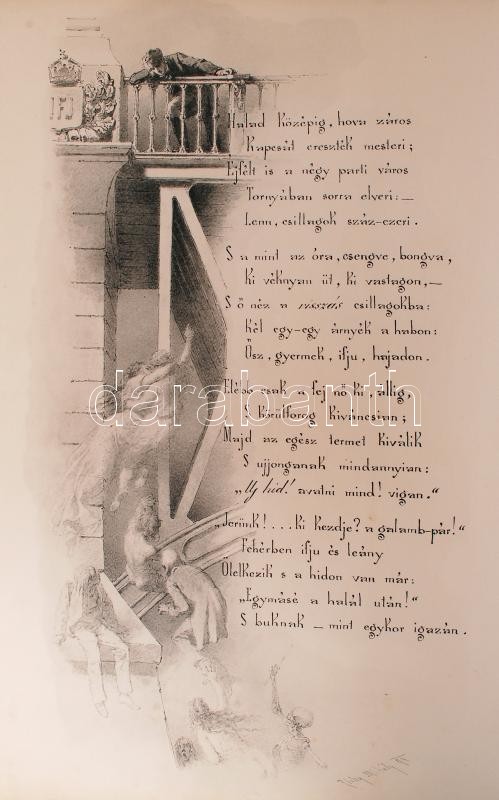 Halad középig, hova záros
Kapcsát ereszték mesteri;
Éjfélt is a négy parti város
Tornyában sorra elveri: —
Lenn, csillagok száz-ezeri.
S a mint az óra, csengve, bongva,
Ki véknyan üt, ki vastagon, —
S ő néz a visszás csillagokba:
Kél egy-egy árnyék a habon:
Ősz, gyermek, ifju, hajadon.
Elébb csak a fej nő ki, állig,
S körülforog kiváncsian;
Majd az egész termet kiválik
S ujjonganak mindannyian:
„Uj hid! avatni mind! vigan."
„Jerünk! ... ki kezdje? a galamb-pár!"
Fehérben ifju és leány
Ölelkezik s a hidon van már:
„Egymásé a halál után!"
S buknak — mint egykor igazán.
darabanth